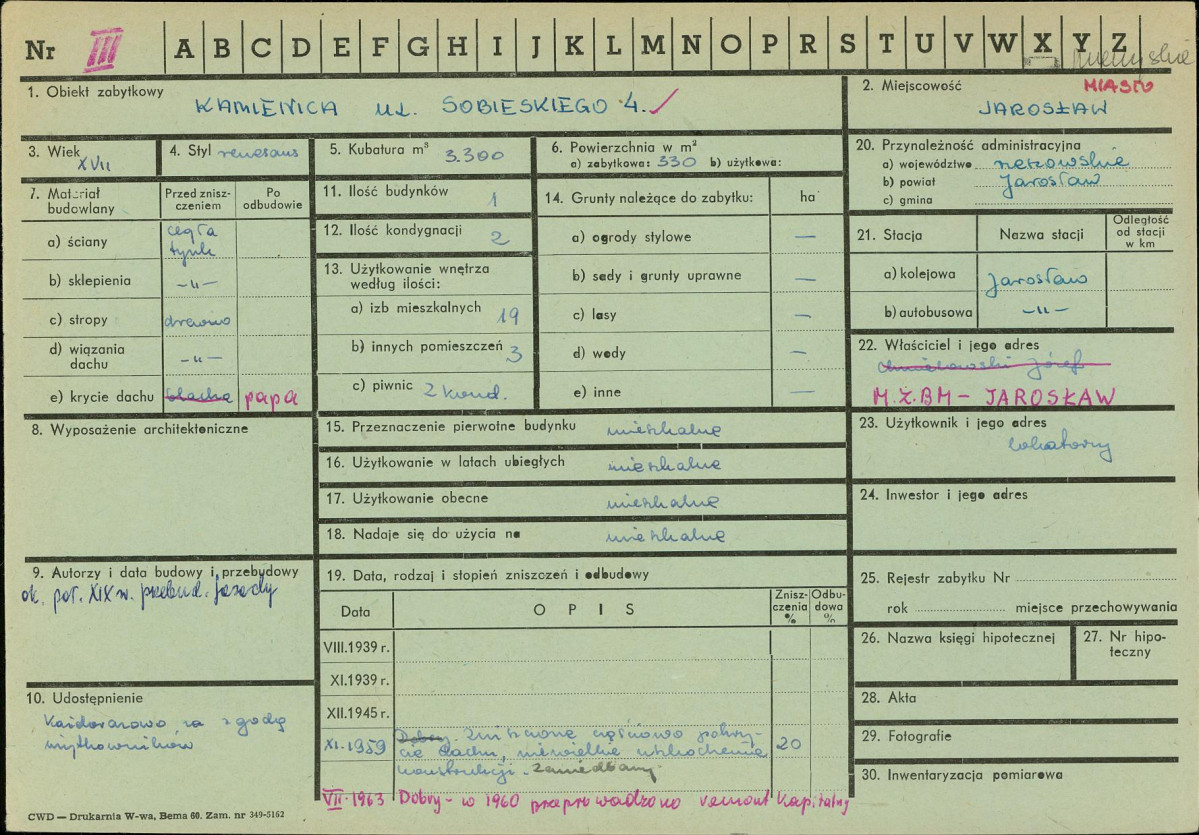 Nr III A B C D E F G H I J K L M N O P R S T U V W X Y Z
1. Obiekt zabytkowy
KAMIENICA ul. SOBIESKIEGO 4.
2. Miejscowość MIASTO
JAROSŁAW
3. Wiek XVII
4. Styl renesans
5. Kubatura m³ 3.300
6. Powierzchnia w m²
a) zabytkowa: 330 b) użytkowa:
20. Przynależność administracyjna
a) województwo rzeszowskie
b) powiat Jarosław
c) gmina
7. Materiał budowlany
Przed zniszczeniem
Po odbudowie
a) ściany cegła tynk
b) sklepienia -„-
c) stropy drewno
d) wiązania dachu -„-
e) krycie dachu blacha papa
11. Ilość budynków 1
12. Ilość kondygnacji 2
13. Użytkowanie wnętrza
według ilości:
a) izb mieszkalnych 19
b) innych pomieszczeń 3
c) piwnic 2 kond.
14. Grunty należące do zabytku: ha
a) ogrody stylowe —
b) sady i grunty uprawne —
c) lasy —
d) wody —
e) inne —
21. Stacja Nazwa stacji Odległość od stacji w km
a) kolejowa Jarosław
b) autobusowa -„-
22. Właściciel i jego adres
Józef
M.Z.BM - JAROSŁAW
8. Wyposażenie architektoniczne
15. Przeznaczenie pierwotne budynku mieszkalne
16. Użytkowanie w latach ubiegłych mieszkalne
17. Użytkowanie obecne mieszkalne
18. Nadaje się do użycia na mieszkalne
23. Użytkownik i jego adres
lokatorzy
24. Inwestor i jego adres
9. Autorzy i data budowy i przebudowy
ok. poł. XIX w. przebud. fasady
19. Data, rodzaj i stopień zniszczeń i odbudowy
Data OPIS Zniszczenia % Odbudowa %
VIII.1939 r.
XI.1939 r.
XII.1945 r.
XI.1959 Dobry. Zniszczone częściowo pokry- 20
cie dachu, niewielkie uszkodzenie
konstrukcji. Zaniedbany.
VII.1963 Dobry - w 1960 przeprowadzono remont kapitalny
10. Udostępnienie
Każdorazowo za zgodą
użytkowników
25. Rejestr zabytku Nr
rok miejsce przechowywania
26. Nazwa księgi hipotecznej
27. Nr hipoteczny
28. Akta
29. Fotografie
30. Inwentaryzacja pomiarowa
CWD — Drukarnia W-wa, Bema 60. Zam. nr 349-5162